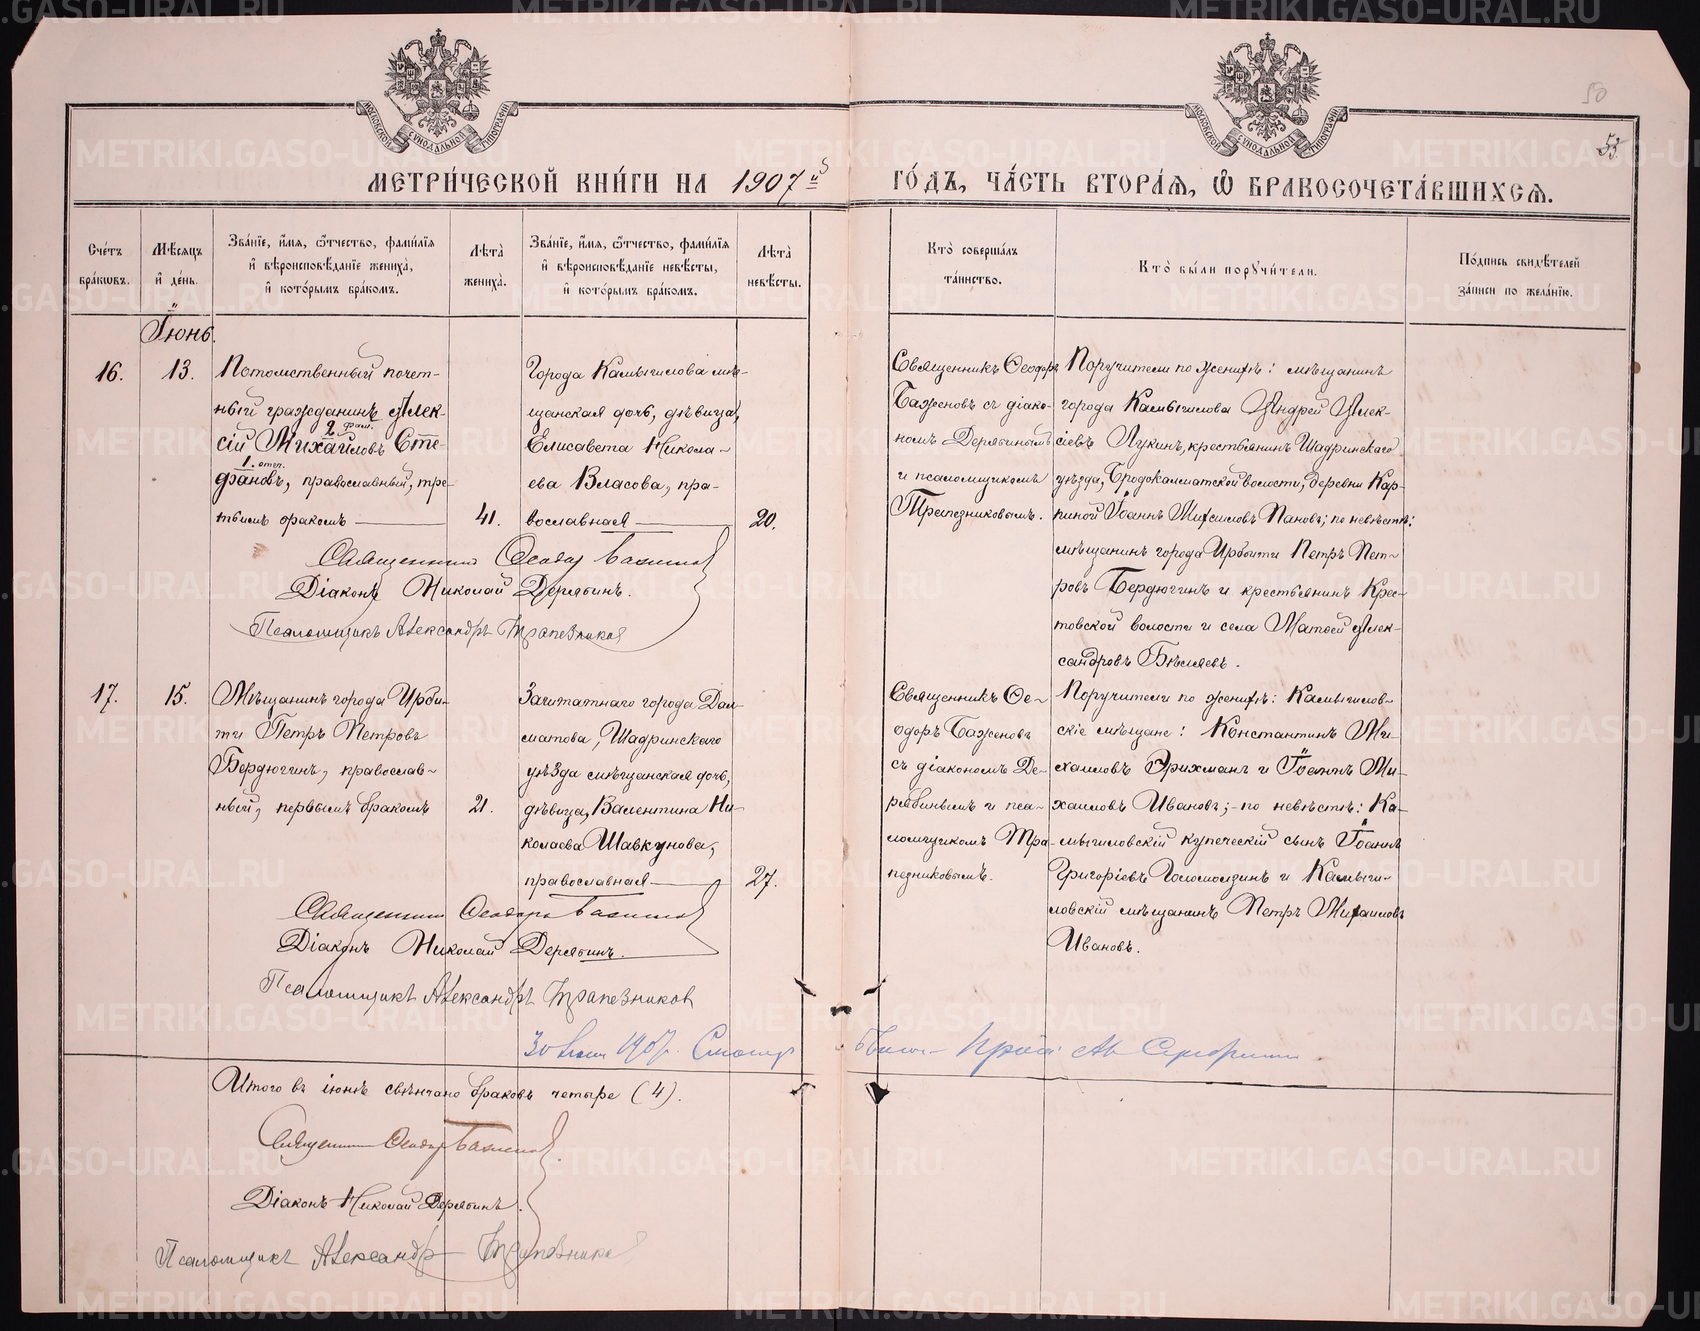 МЕТРИ́ЧЕСКОЙ КНИ́ГИ НА 1907й
ГО́ДЪ, ЧА́СТЬ ВТОРА́Я, Ѽ БРАКОСОЧЕТА́ВШИХСЯ.
50
53.
Сче́тъ бра́кѡвъ.
Мѣ́сяцъ и҆ де́нь.
Зва́нїе, и҆́мя, ѻ҆́тчество, фами́лїя и҆ вѣроисповѣ́данїе жениха̀, и҆ кото́рымъ бра́комъ.
Лѣта̀ жениха̀.
Зва́нїе, и҆́мя, ѻ҆́тчество, фами́лїя и҆ вѣроисповѣ́данїе невѣ́сты, и҆ кото́рымъ бра́комъ.
Лѣта̀ невѣ́сты.
Кто̀ соверша́лъ та́инство.
Кто̀ бы́ли поручи́тели.
По́дпись свидѣ́телей за́писи по жела́нїю.
Іюнь.
16.
13.
Потомственный почет-
ный гражданинъ Алек-
2 фам.
сій Михайловъ Сте-
1. отч.
фановъ, православный, тре-
тьимъ бракомъ
41.
Города Камышлова мѣ-
щанская дочь, дѣвица,
Елисавета Никола-
ева Власова, пра-
вославная
20.
Священникъ Ѳеодоръ
Баженовъ съ діако-
номъ Дерябинымъ
и псаломщикомъ
Трапезниковымъ.
Поручители по женихѣ: мѣщанинъ
города Камышлова Андрей Алек-
сіевъ Лукинъ, крестьянинъ Шадринскаго
уѣзда, Бродокалматской волости, деревни Кар-
пиной Іоаннъ Михаиловъ Пановъ; по невѣстѣ:
мѣщанинъ города Ирбити Петръ Пет-
ровъ Бердюгинъ и крестьянинъ Крес-
товской волости и села Матвей Алек-
сандровъ Бѣляевъ.
Священникъ Ѳеодоръ Баженовъ
Діаконъ Николай Дерябинъ.
Псаломщикъ Александръ Трапезников
17.
15.
Мѣщанинъ города Ирби-
ти Петръ Петровъ
Бердюгинъ, православ-
ный, первымъ бракомъ
21.
Заштатнаго города Дал-
матова, Шадринскаго
уѣзда мѣщанская дочь,
дѣвица, Валентина Ни-
колаева Шавкунова,
православная
27.
Священникъ Ѳе-
одоръ Баженовъ
съ діакономъ Де-
рябинымъ и пса-
ломщикомъ Тра-
пезниковымъ.
Поручители по женихѣ: Камышлов-
скіе мѣщане: Константинъ Ми-
хаиловъ Эрихманъ и Іоаннъ Ми-
хаиловъ Ивановъ; - по невѣстѣ: Ка-
мышловскій купеческій сынъ Іоаннъ
Григоріевъ Голомолзинъ и Камыш-
ловскій мѣщанинъ Петръ Михаиловъ
Ивановъ.
Священникъ Ѳеодоръ Баженовъ
Діаконъ Николай Дерябинъ.
Псаломщикъ Александръ Трапезников
1907.
Итого въ іюнѣ свѣнчано браковъ четыре (4).
Священникъ Ѳеодоръ Баженовъ
Діаконъ Николай Дерябинъ.
Псаломщикъ Александръ Трапезников